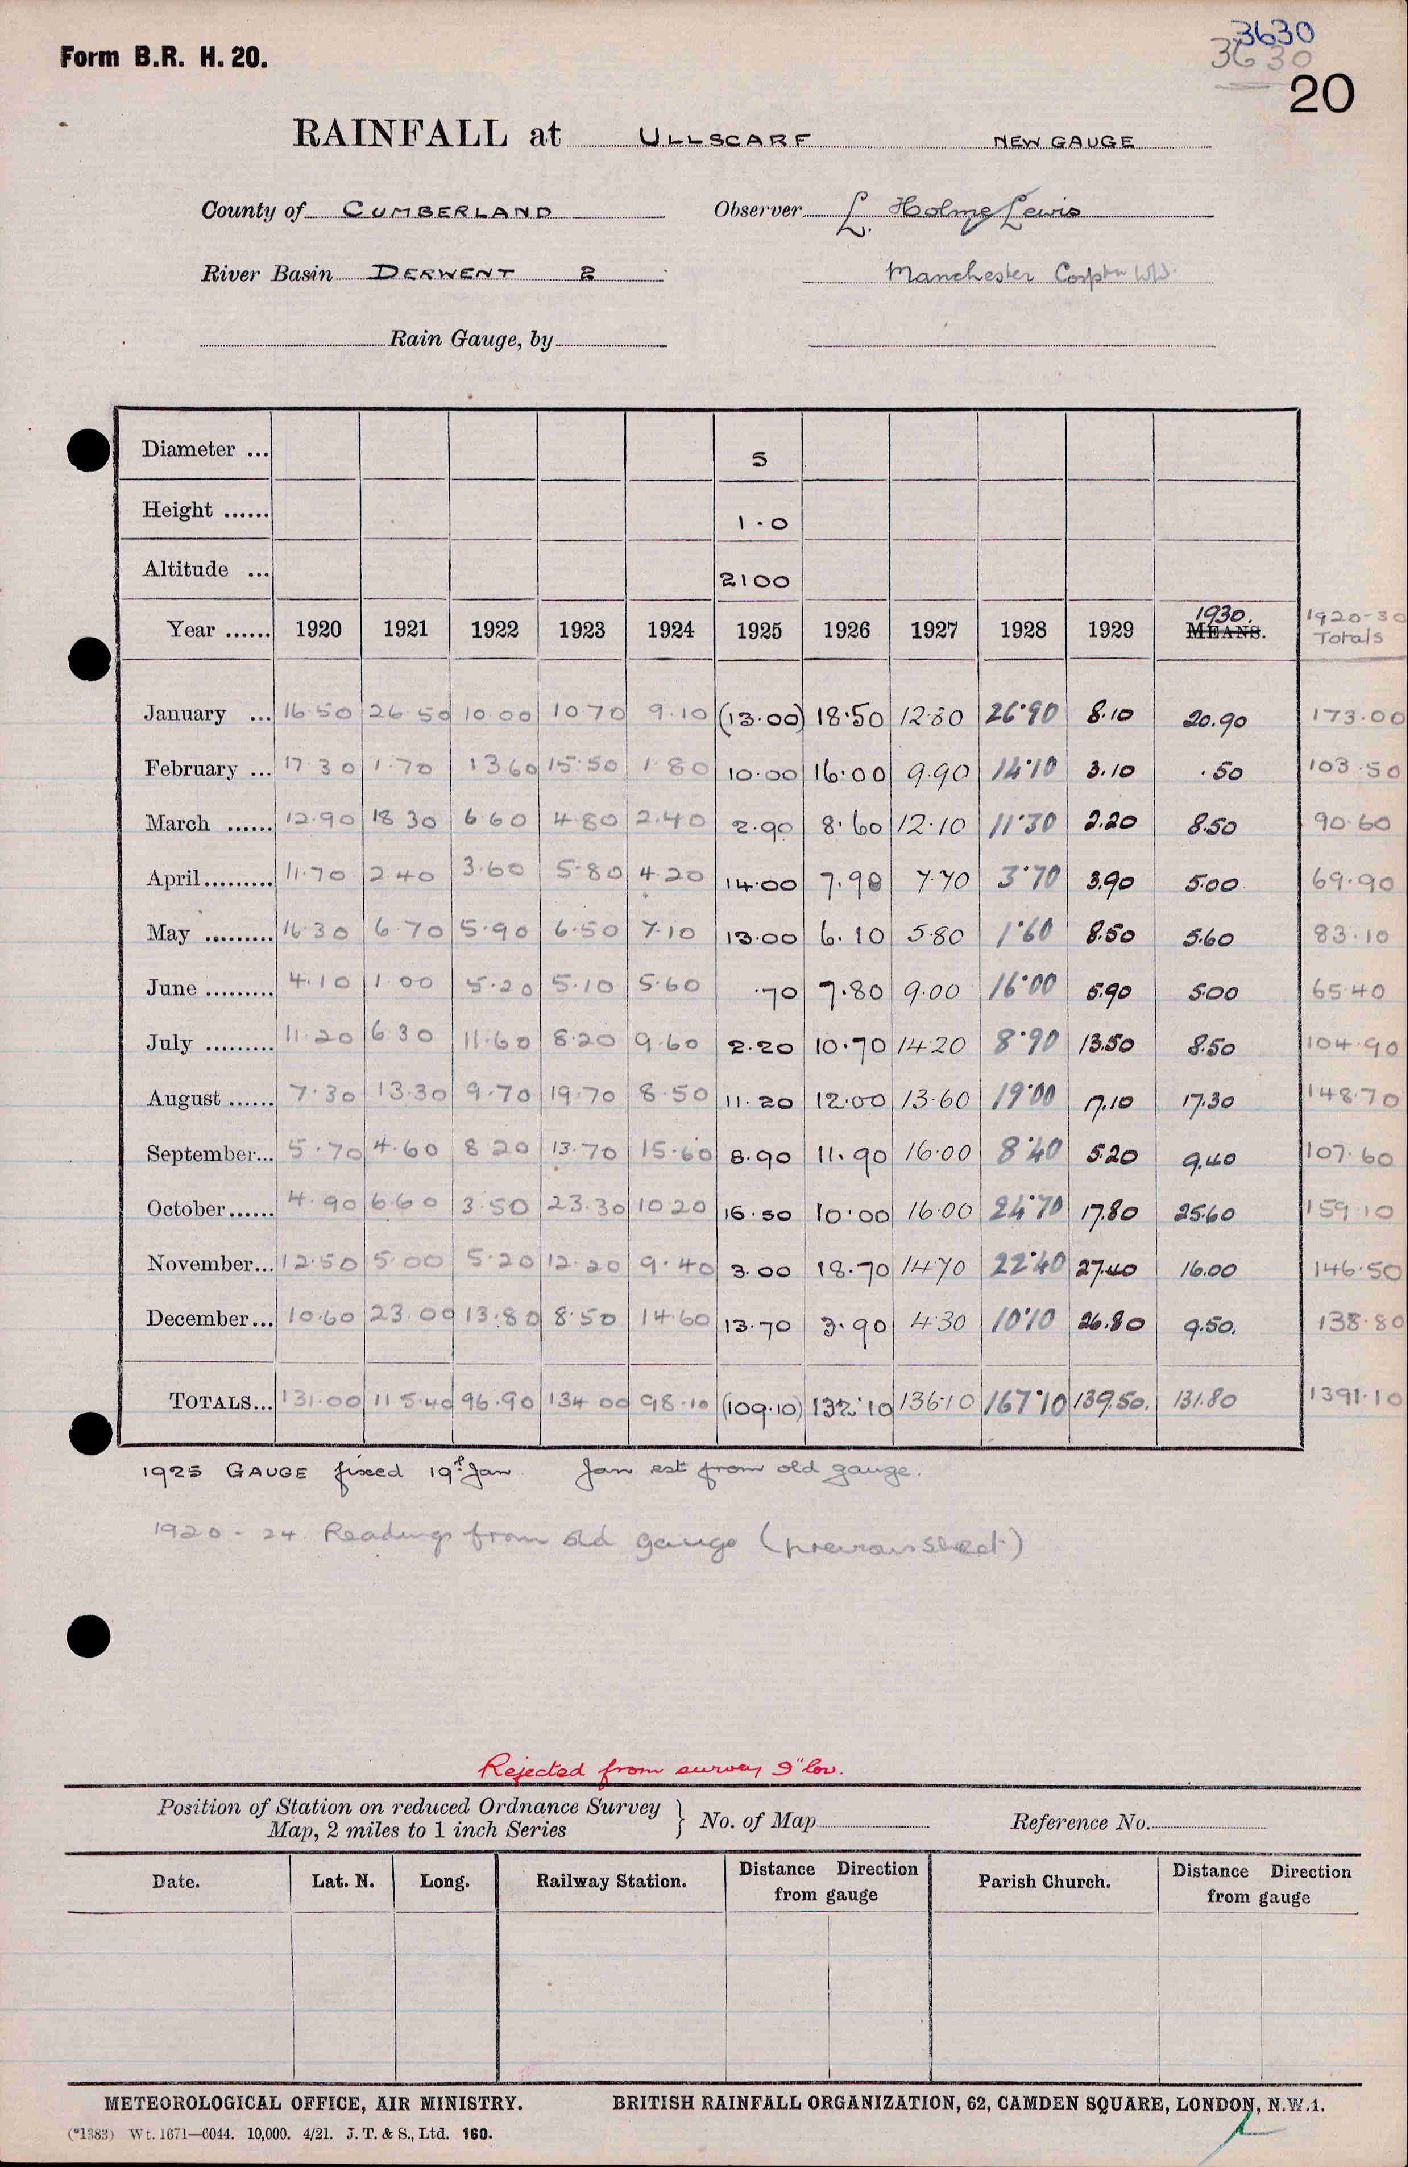 3630
Form B.R. H. 20.
3630
20
RAINFALL at ULLSCARF NEW GAUGE
County of CUMBERLAND Observer L. Holme Lewis
River Basin DERWENT 2 Manchester Corptn WW.
Rain Gauge, by
Diameter ... 5
Height ...... 1.0
Altitude ... 2100
Year ...... 1920 1921 1922 1923 1924 1925 1926 1927 1928 1929 1930. MEANS. 1920-30 Totals
January ... 16.50 26.50 10.00 10.70 9.10 (13.00) 18.50 12.80 26.90 8.10 20.90 173.00
February ... 17.30 1.70 13.60 15.50 1.80 10.00 16.00 9.90 14.10 3.10 .50 103.50
March ...... 12.90 18.30 6.60 4.80 2.40 2.90 8.60 12.10 11.30 2.20 8.50 90.60
April......... 11.70 2.40 3.60 5.80 4.20 14.00 7.90 7.70 3.70 3.90 5.00 69.90
May ......... 16.30 6.70 5.90 6.50 7.10 13.00 6.10 5.80 1.60 8.50 5.60 83.10
June ......... 4.10 1.00 5.20 5.10 5.60 .70 7.80 9.00 16.00 5.90 5.00 65.40
July ......... 11.20 6.30 11.60 8.20 9.60 2.20 10.70 14.20 8.90 13.50 8.50 104.90
August ...... 7.30 13.30 9.70 19.70 8.50 11.20 12.00 13.60 19.00 7.10 17.30 148.70
September... 5.70 4.60 8.20 13.70 15.60 8.90 11.90 16.00 8.40 5.20 9.40 107.60
October...... 4.90 6.60 3.50 23.30 10.20 16.50 10.00 16.00 24.70 17.80 25.60 159.10
November... 12.50 5.00 5.20 12.20 9.40 3.00 18.70 14.70 22.40 27.40 16.00 146.50
December... 10.60 23.00 13.80 8.50 14.60 13.70 3.90 4.30 10.10 26.80 9.50. 138.80
TOTALS... 131.00 115.40 96.90 134.00 98.10 (109.10) 132.10 136.10 167.10 139.50. 131.80 1391.10
1925 GAUGE fixed 19th Jan. Jan est from old gauge.
1920 - 24 Readings from old gauge (previous sheet)
Rejected from survey 9" low.
Position of Station on reduced Ordnance Survey Map, 2 miles to 1 inch Series } No. of Map Reference No.
Date. Lat. N. Long. Railway Station. Distance Direction from gauge Parish Church. Distance Direction from gauge
METEOROLOGICAL OFFICE, AIR MINISTRY. BRITISH RAINFALL ORGANIZATION, 62, CAMDEN SQUARE, LONDON, N.W.1.
(*1383) Wt. 1671—6044. 10,000. 4/21. J. T. & S., Ltd. 160.